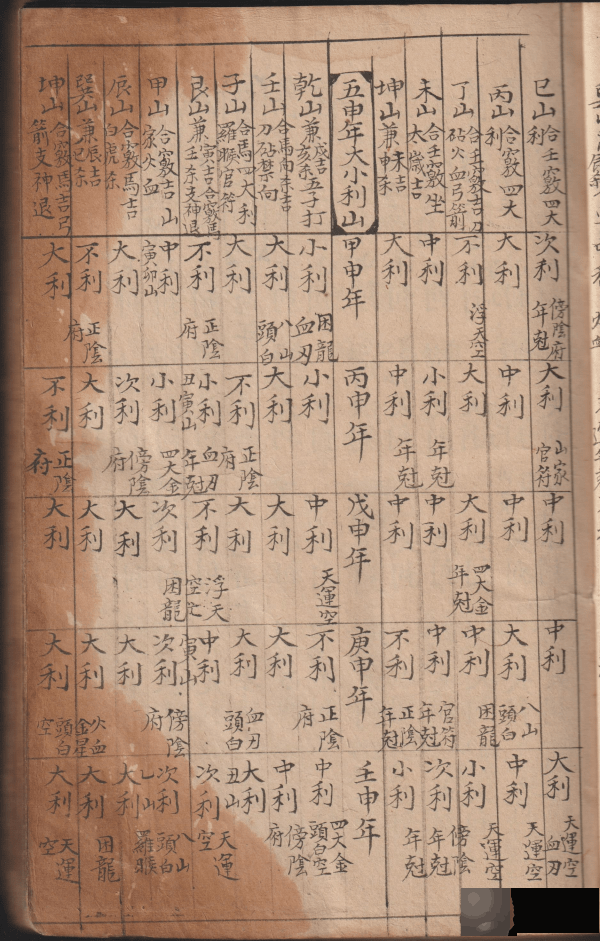 巳山利合壬竅四大
丙山利合竅四大
丁山合壬竅吉刀砧火血弓箭
未山合壬竅坐太歲吉
坤山兼未吉申杀
五申年大小利山
乾山兼亥杀五子打
壬山合馬南杀吉刀砧禁向
子山合馬四大利羅睺官符
艮山兼寅吉合竅馬壬杀支神退
甲山合竅吉山家火血
辰山合竅馬吉白虎杀
巽山兼辰吉巳杀
坤山合竅馬吉弓箭支神退
次利 傍陰府年尅
中利
不利 浮天空
中利
大利
甲申年
小利 困龍血刃
大利 八山頭白
大利
不利 正陰府
中利 寅卯山
大利
不利 正陰府
大利
大利 山家官符
中利
大利
小利 年尅
中利 年尅
丙申年
小利
大利
不利 正陰府
小利 丑寅山 血刃年尅
小利 四大金
次利 傍陰府
大利
不利 正陰府
中利
中利
大利 四大金年尅
中利
中利
戊申年
中利 天運空
大利
大利
不利 浮天空亡
次利 困龍
大利
大利
大利
中利
大利 八山頭白
中利 困龍
中利 官符年尅
不利 正陰年尅
庚申年
不利 正陰府
大利
大利 血刃頭白
中利 寅山
次利 傍陰府
大利
大利 火血金星
大利 頭白空
大利 天運空血刃
中利 天運空
小利 天運空
次利 傍陰年尅
小利 年尅
壬申年
中利 四大金頭白空
中利 傍陰府
大利 丑山
次利 天運空
次利 乙山 八山頭白羅睺
大利
大利 困龍
大利 天運空